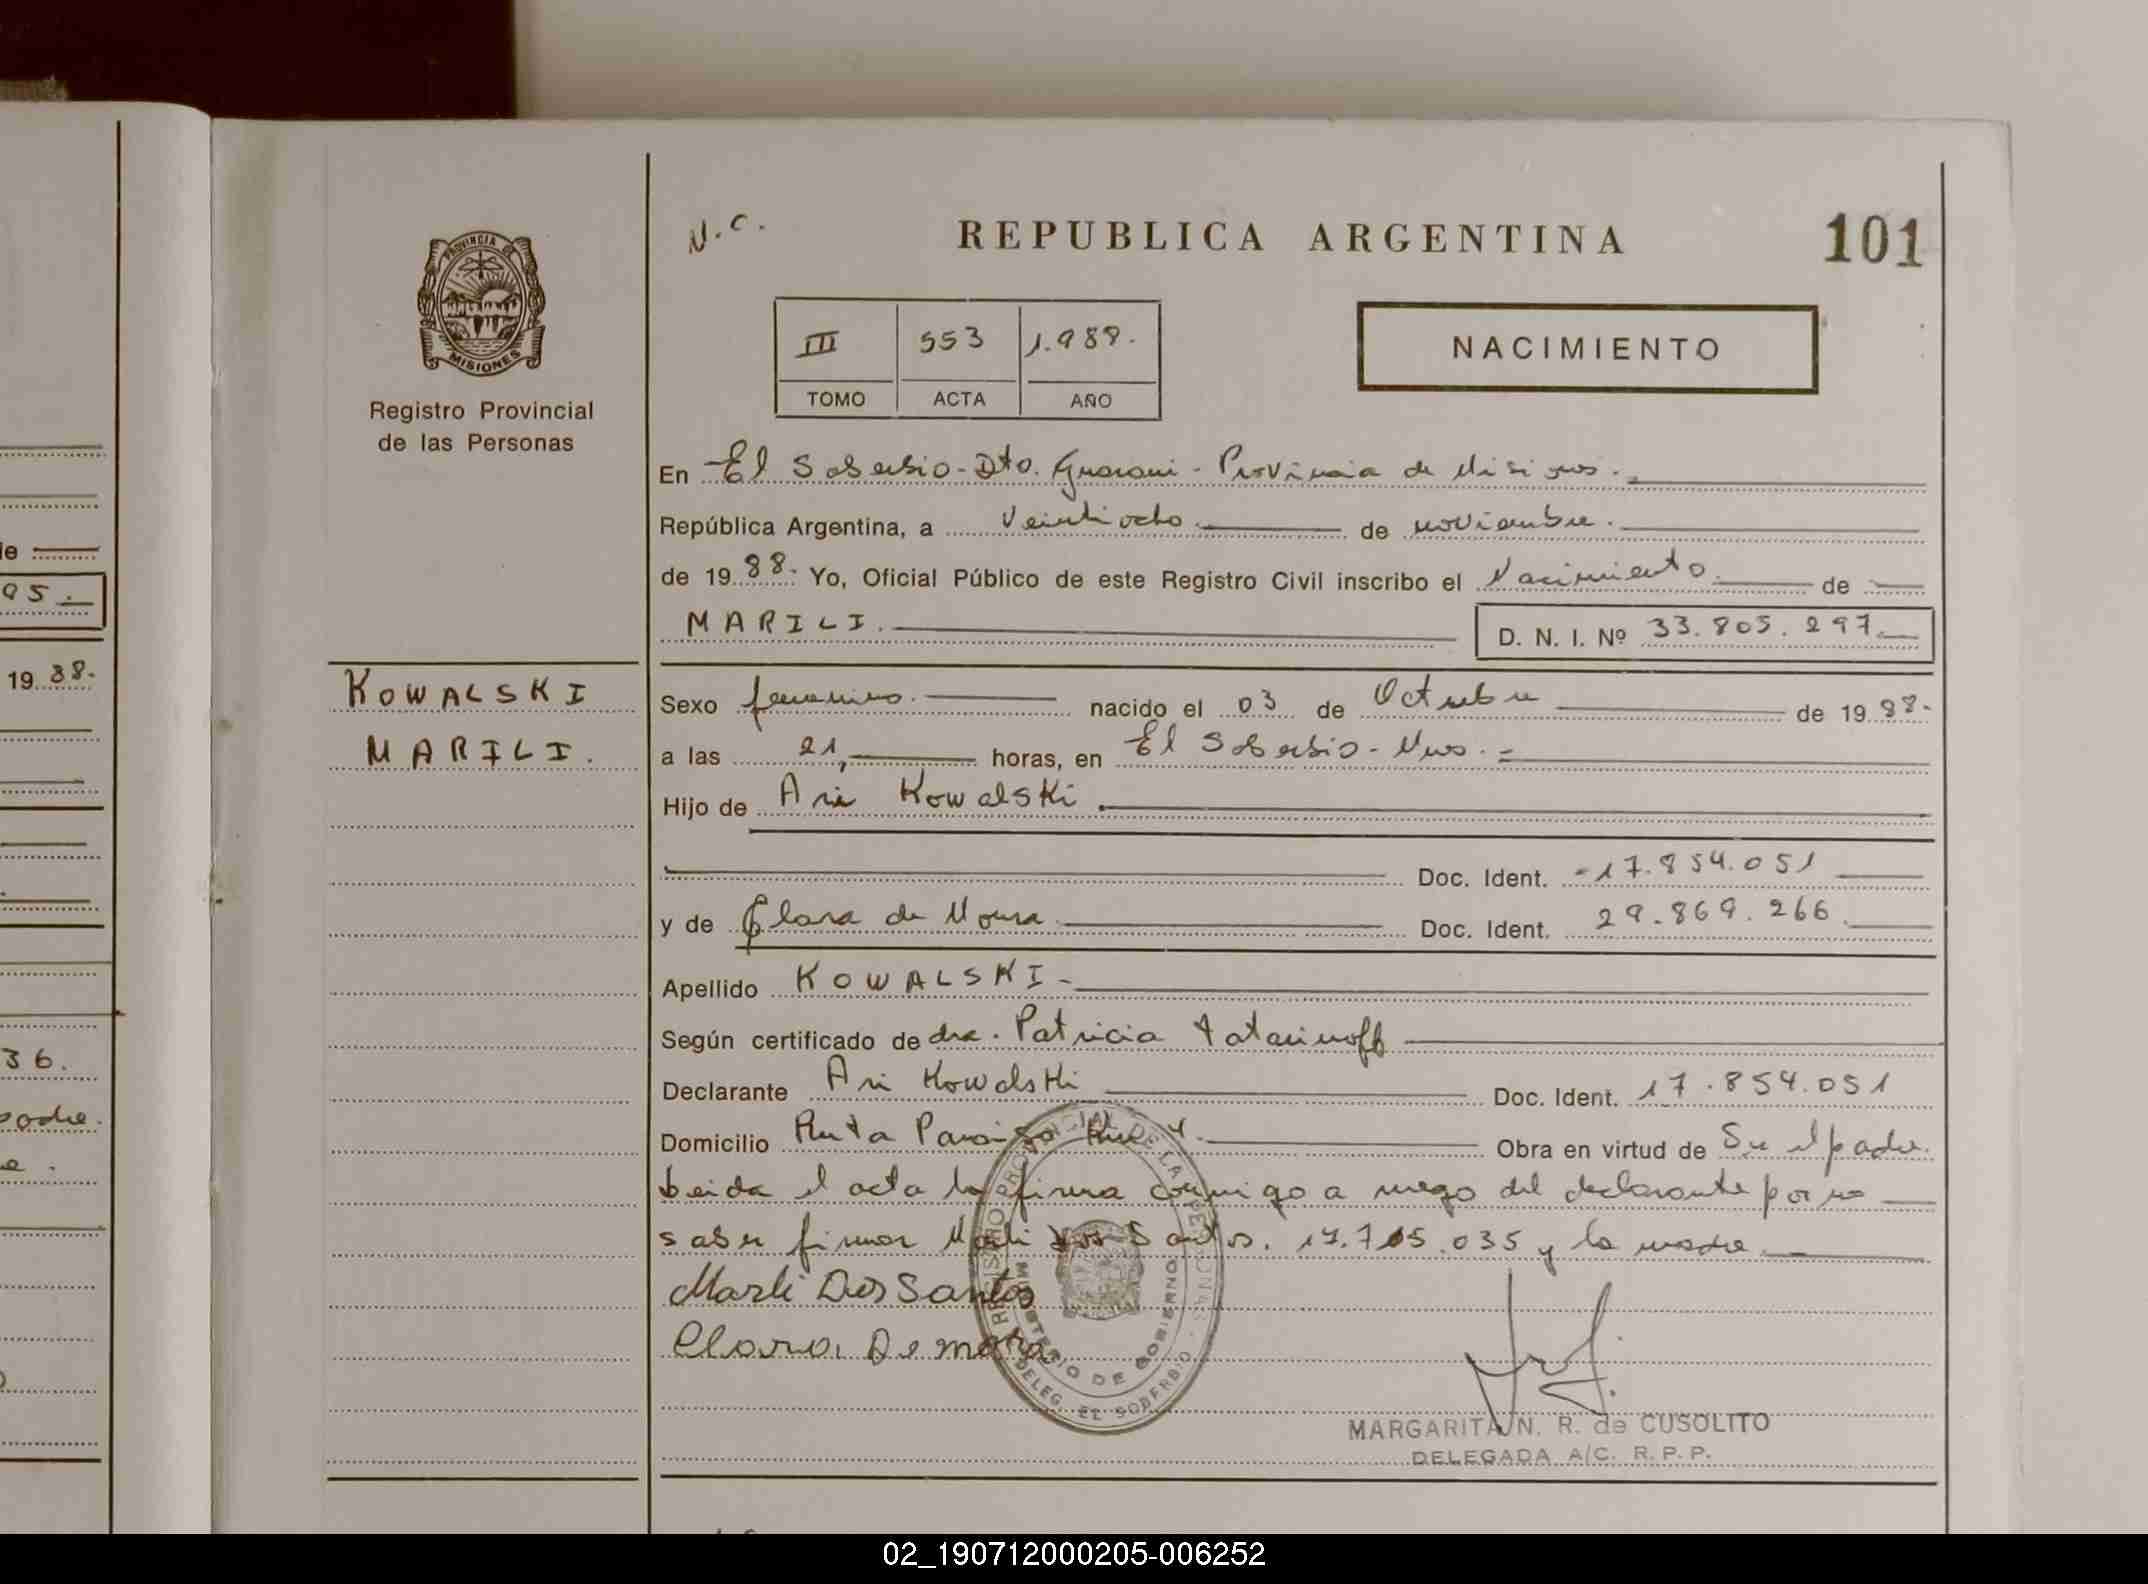 N.C.
REPUBLICA ARGENTINA
101
PROVINCIA
MISIONES
III 553 1.988.
TOMO ACTA AÑO
NACIMIENTO
Registro Provincial
de las Personas
En El Soberbio - Dto. Guarani - Provincia de Misiones.
República Argentina, a Veintiocho de noviembre.
de 1988. Yo, Oficial Público de este Registro Civil inscribo el Nacimiento. de
MARILI. D. N. I. Nº 33.805.297
KOWALSKI
MARILI.
Sexo femenino. nacido el 03 de Octubre de 1988.
a las 21, horas, en El Soberbio - Mnes.
Hijo de Ari Kowalski.
Doc. Ident. -17.854.051
y de Clara de Moura Doc. Ident. 29.869.266.
Apellido KOWALSKI-
Según certificado de dra. Patricia Tatarinoff
Declarante Ari Kowalski Doc. Ident. 17.854.051
Domicilio Ruta Paraiso Km 4. Obra en virtud de Ser el padre.
Leida el acta la firma conmigo a ruego del declarante por no
saber firmar Marli Dos Santos. 17.715.035 y la madre
Marli Dos Santos
Clara De mora
REGISTRO PROVINCIAL DE LAS PERSONAS
MINISTERIO DE GOBIERNO
DELEG. EL SOBERBIO
MARGARITA N. R. de CUSOLITO
DELEGADA A/C. R. P. P.
de
95.
1938.
36.
padre.
02_190712000205-006252